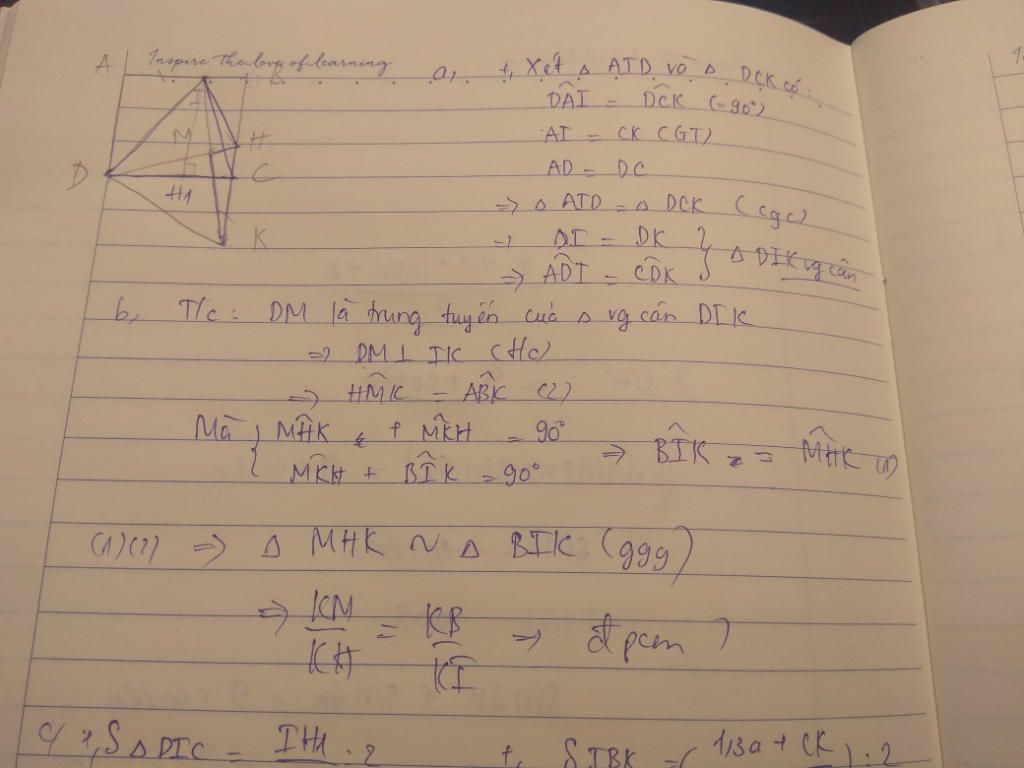 Inspire The love of learning
A
B
I
M
H
D
C
H1
K
a, +, Xét △ AID và △ DCK có:
D̂AI = D̂CK (=90°)
AI = CK (GT)
AD = DC
=> △ AID = △ DCK (cgc)
=> DI = DK } △ DIK vg cân
=> ÂDI = ĈDK
b, T/c: DM là trung tuyến của △ vg cân DIK
=> DM ⊥ IK (Hc)
=> HM̂K = AB̂K (2)
Mà { MĤK + MK̂H = 90°
MK̂H + BÎK = 90° => BÎK = MĤK (1)
(1)(2) => △ MHK ~ △ BIK (ggg)
=> KM/KH = KB/KI => đpcm
c/ +, S△DIC = IH1 . 2
+, SIBK = (1,3a + CK) . 2